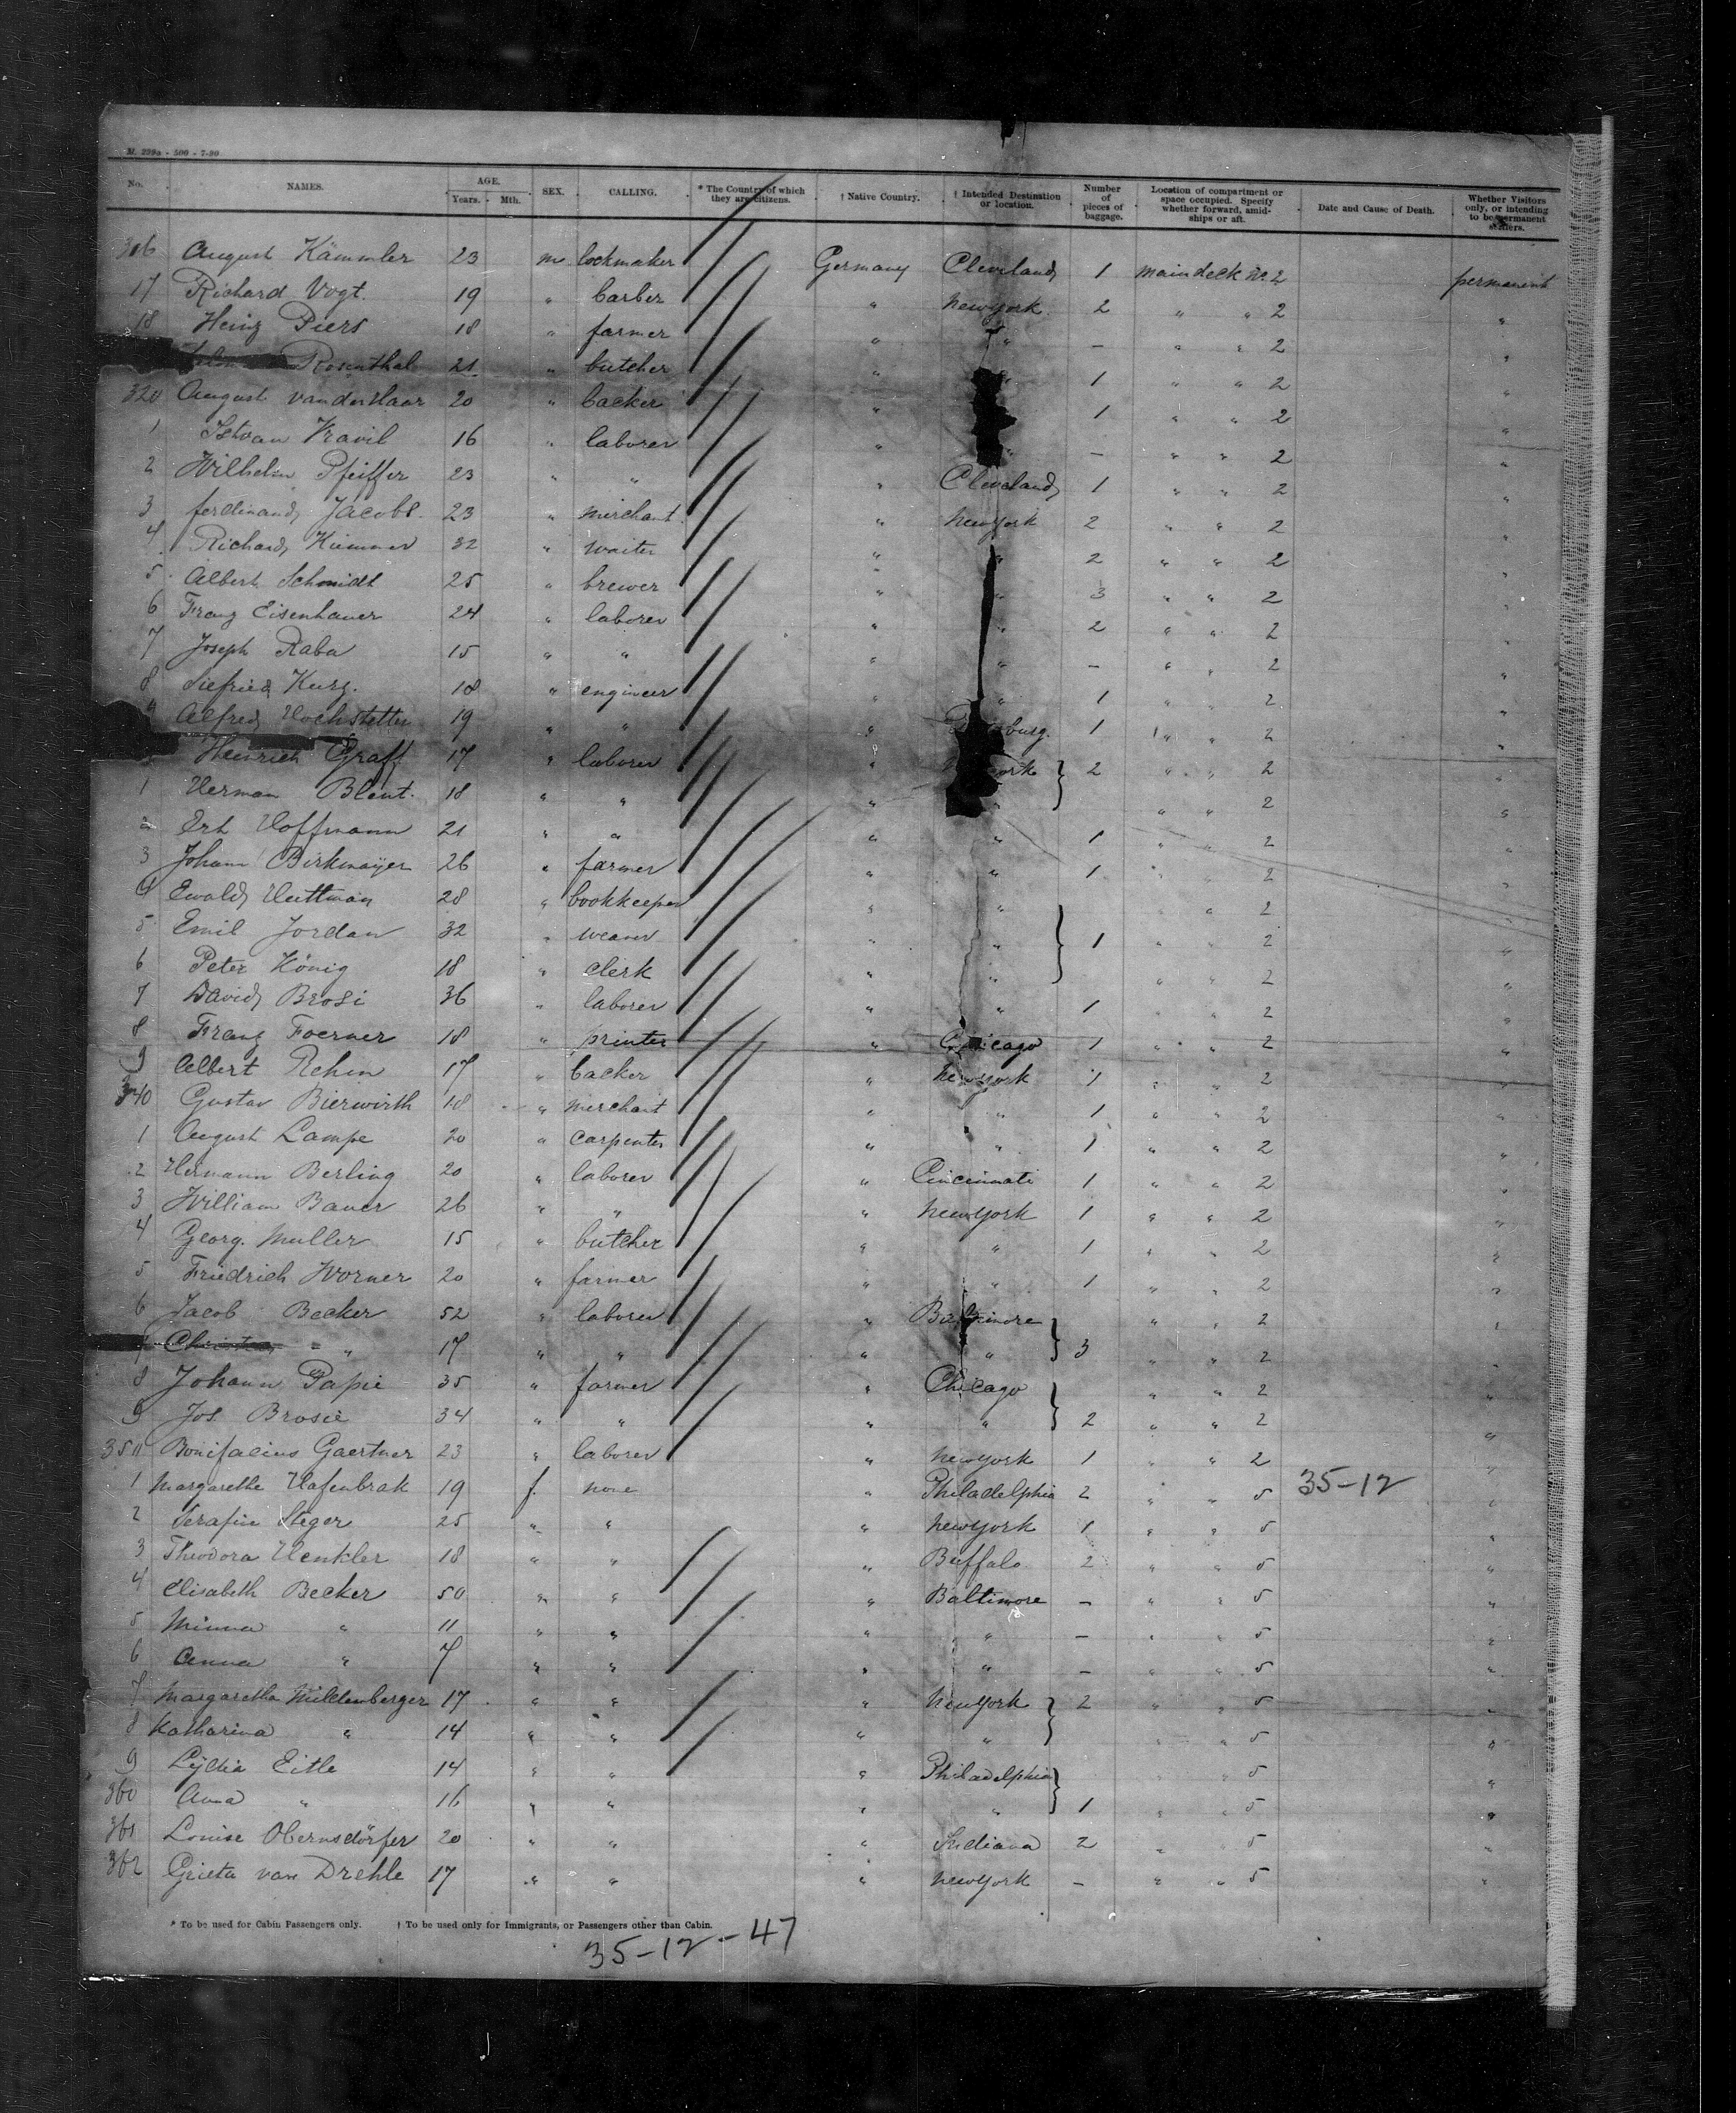 M. 239a - 500 - 7-90
No. NAMES. AGE. Years. Mth. SEX. CALLING. * The Country of which they are citizens. † Native Country. † Intended Destination or location. Number of pieces of baggage. Location of compartment or space occupied. Specify whether forward, amidships or aft. Date and Cause of Death. Whether Visitors only, or intending to be permanent settlers.
316 August Kämmler 23 m lockmaker Germany Cleveland 1 main deck No. 2 permanent
17 Richard Vogt. 19 " barber " New York 2 " " 2 "
18 Heinz Piers 18 " farmer " " - " " 2 "
Rosenthal 21 " butcher " " 1 " " 2 "
320 August van der Haar 20 " backer " 1 " " 2 "
1 Istvan Kravil 16 " laborer " " - " " 2 "
2 Wilhelm Pfeiffer 23 " " " Cleveland 1 " " 2 "
3 ferdinand Jacobs. 23 " merchant " New York 2 " " 2 "
4 Richard Kümmer 32 " waiter " " 2 " " 2 "
5 Albert Schmidt 25 " brewer " " 3 " " 2 "
6 Franz Eisenhauer 24 " laborer " " 2 " " 2 "
7 Joseph Raba 15 " " " " - " " 2 "
8 Siefried Kurz. 18 " engineer " " 1 " " 2 "
9 Alfred Hochstetter 19 " " " burg. 1 " " 2 "
Heinrich Graff 17 " laborer " York 2 " " 2 "
1 Herman Blent. 18 " " " " " " 2 "
2 Erh Hoffmann 21 " " " " 1 " " 2 "
3 Johann Birkmayer 26 " farmer " " 1 " " 2 "
4 Ewald Huttman 28 " bookkeeper " " " " 2 "
5 Emil Jordan 32 " weaver " " 1 " " 2 "
6 Peter König 18 " clerk " " " " 2 "
7 David Brosi 36 " laborer " " 1 " " 2 "
8 Franz Foerner 18 " printer " Chicago 1 " " 2 "
9 Albert Rehm 17 " backer " New York 1 " " 2 "
340 Gustav Bierwirth 18 " merchant " " 1 " " 2 "
1 August Lampe 20 " carpenter " " 1 " " 2 "
2 Hermann Berling 20 " laborer " Cincinnati 1 " " 2 "
3 William Bauer 26 " " " New York 1 " " 2 "
4 Georg. Muller 15 " butcher " " 1 " " 2 "
5 Friedrich Worner 20 " farmer " " 1 " " 2 "
6 Jacob Becker 52 " laborer " Baltimore " " 2 "
7 " 17 " " " " 3 " " 2 "
8 Johann Papie 35 " farmer " Chicago " " 2 "
9 Jos. Brosie 34 " " " " 2 " " 2 "
350 Bonifacius Gaertner 23 " laborer " New York 1 " " 2 "
1 Margarethe Hafenbrak 19 f. none " Philadelphia 2 " " 5 35-12 "
2 Serafin Steger 25 " " " New York 1 " " 5 "
3 Theodora Henkler 18 " " " Buffalo 2 " " 5 "
4 Elisabeth Becker 50 " " " Baltimore - " " 5 "
5 Minna " 11 " " " " - " " 5 "
6 Anna " 7 " " " " - " " 5 "
7 Margaretha Mildenberger 17 " " " New York 2 " " 5 "
8 Katharina " 14 " " " " " " 5 "
9 Lydia Eitle 14 " " " Philadelphia " " 5 "
360 Anna " 16 " " " " 1 " " 5 "
361 Louise Obernsdörfer 20 " " " Indiana 2 " " 5 "
362 Grieta van Drehle 17 " " " New York - " " 5 "
* To be used for Cabin Passengers only. † To be used only for Immigrants, or Passengers other than Cabin.
35-12-47